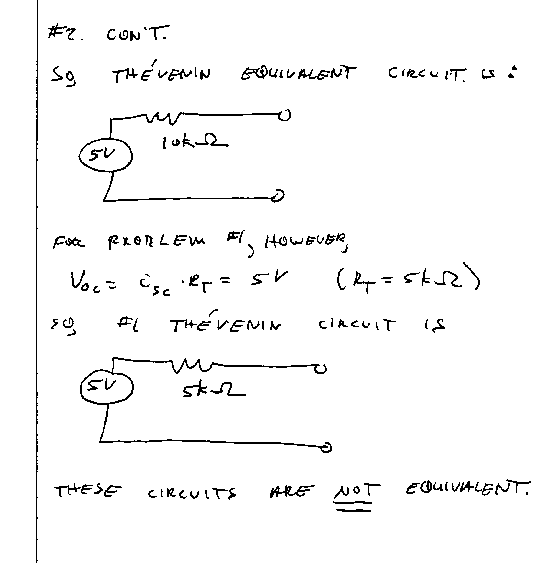 #2. CON'T.
SO THÉVENIN EQUIVALENT CIRCUIT IS:
5V
10kΩ
FOR PROBLEM #1, HOWEVER,
Voc = isc · RT = 5V (RT = 5kΩ)
SO #1 THÉVENIN CIRCUIT IS
5V
5kΩ
THESE CIRCUITS ARE NOT EQUIVALENT.